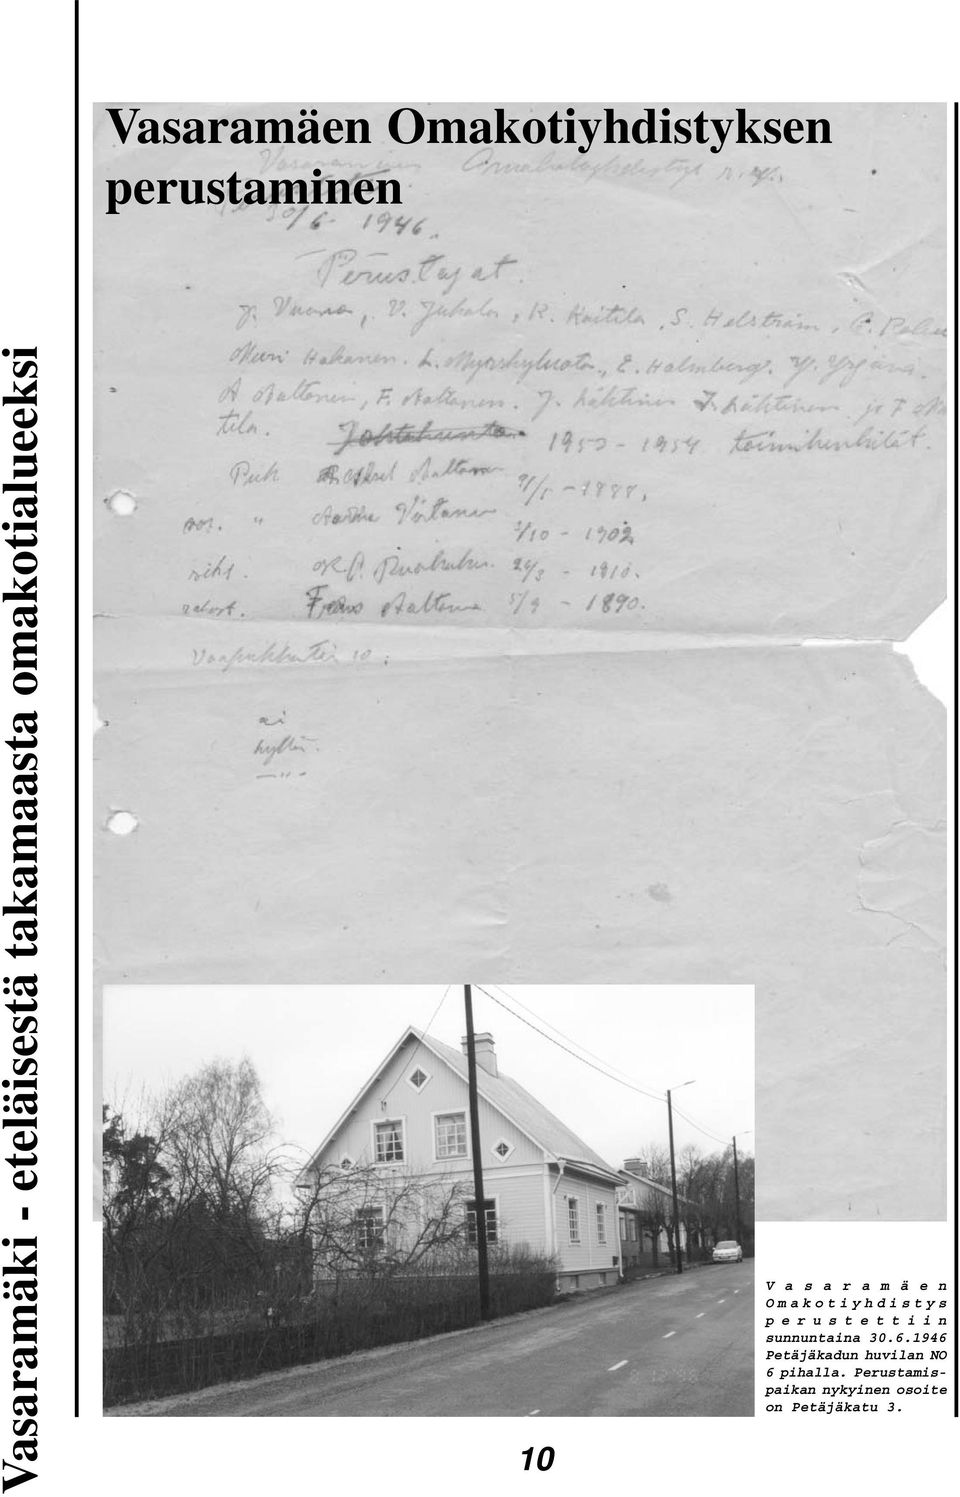 Vasaramäki - eteläisestä takamaasta omakotialueeksi
Vasaramäen Omakotiyhdistyksen
perustaminen
Omakotiyhdistys r.y.
30/6- 1946.
Perustajat.
J. Vuorio, V. Jukola, R. Koitila, S. Helström,
Hakanen. L. Myrskyluoto, E. Holmberg. Y. Yrjänä.
A Aaltonen, F. Aaltonen. J. Lähtinen Lähtinen ja F
tila. Johtokunta 1953 - 1954 toimihenkilöt.
Puh Aaltonen - 1888,
var. " Virtanen 2/10 - 1902
siht. 24/3 - 1910.
rahast. Frans Aaltonen 5/9 - 1890.
10
ai
hyllä.
- " -
Vasaramäen
Omakotiyhdistys
perustettiin
sunnuntaina 30.6.1946
Petäjäkadun huvilan NO
6 pihalla. Perustamis-
paikan nykyinen osoite
on Petäjäkatu 3.
10